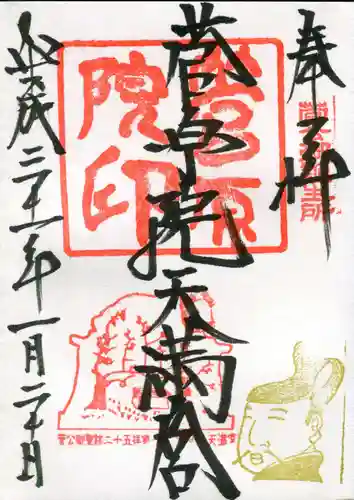 奉拝
菅原院天満宮
平成三十一年一月二十日
菅原院印
菅公御聖跡二十五拝